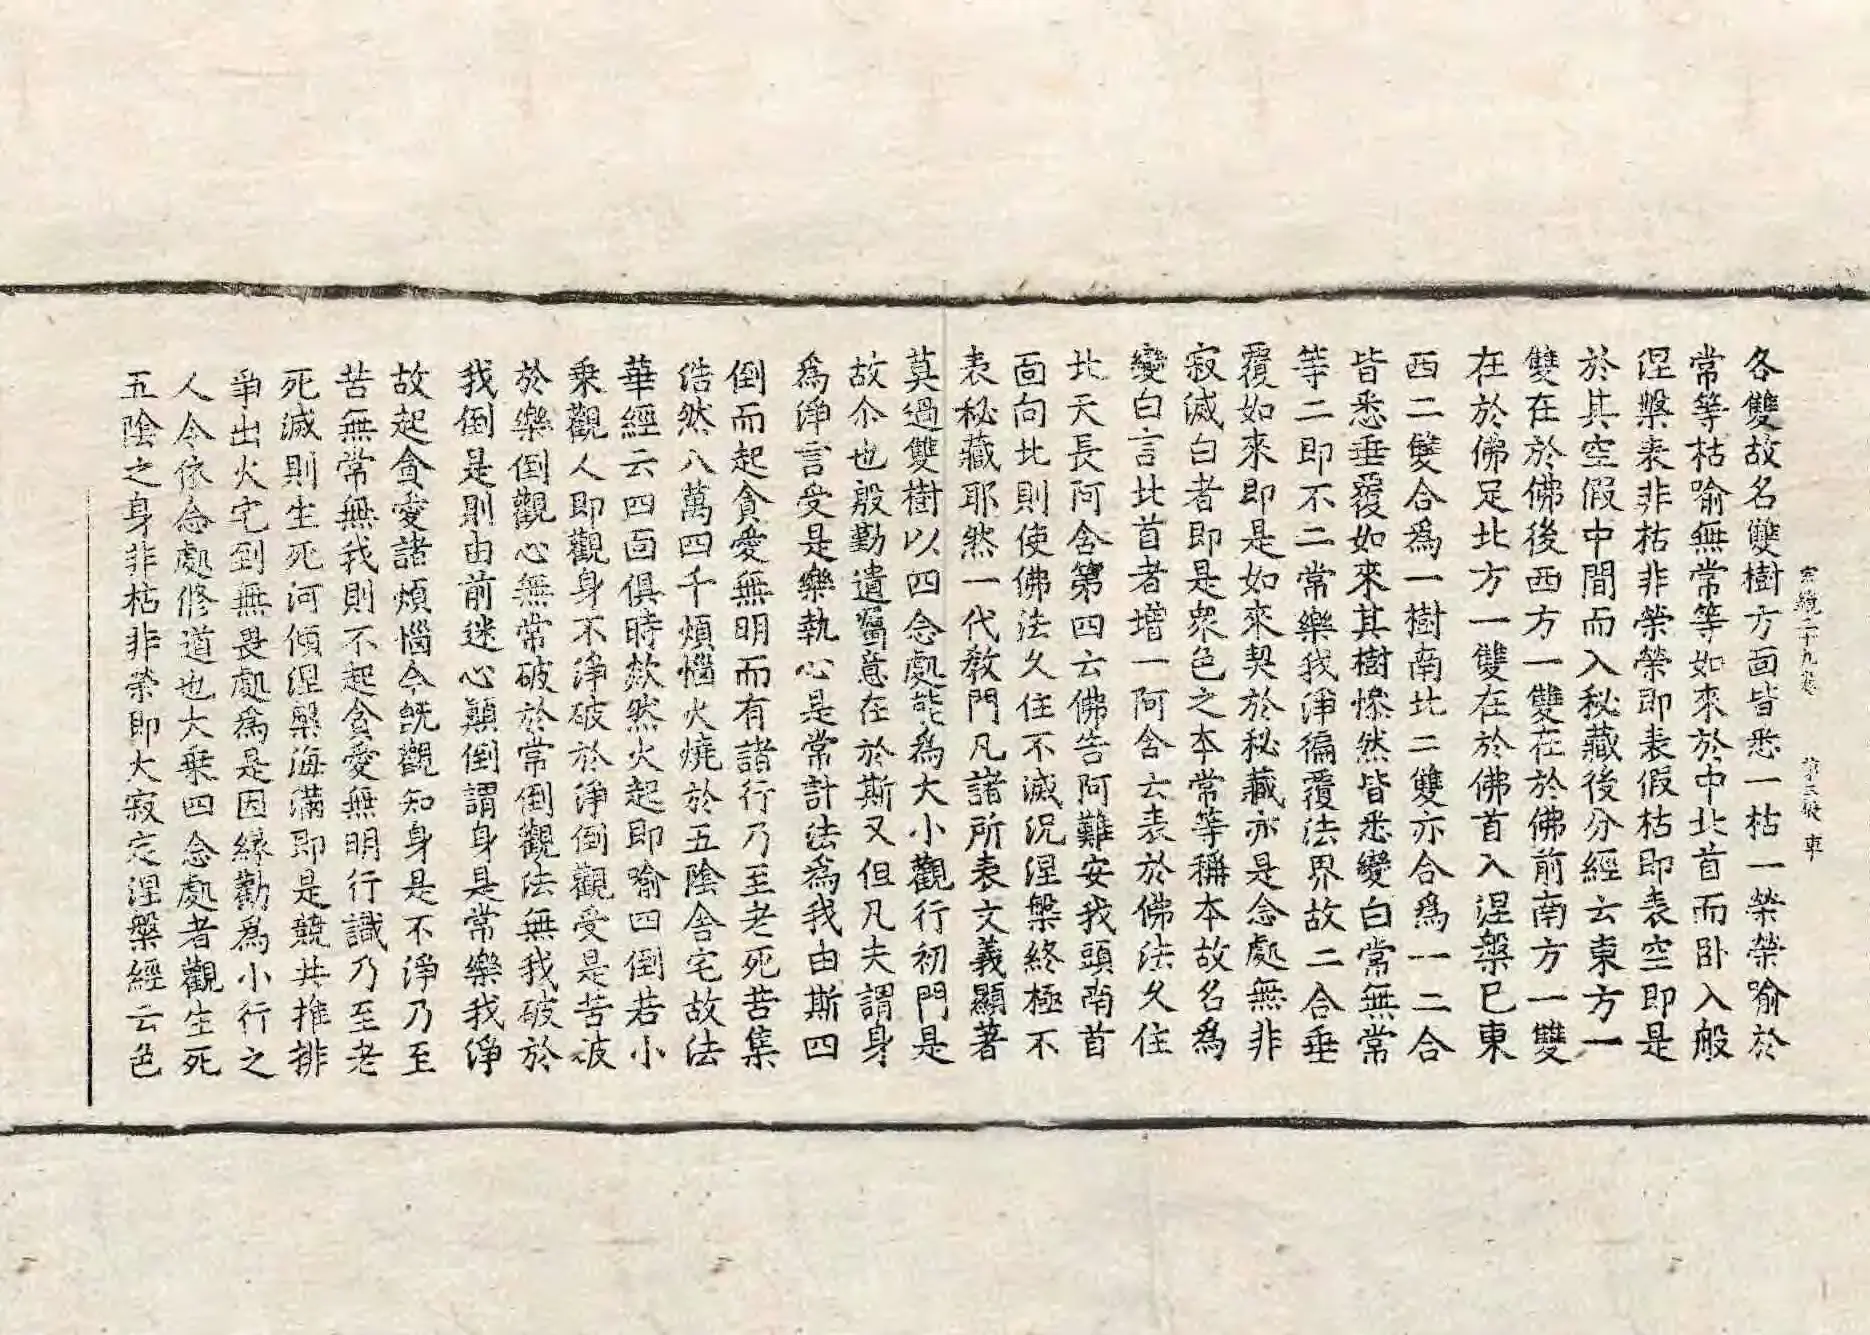 宗鏡二十九卷　第三張　車
各雙故名雙樹方面皆悉一枯一榮榮喻於
常等枯喻無常等如來於中北首而卧入般
涅槃表非枯非榮榮即表假枯即表空即是
於其空假中間而入秘藏後分經云東方一
雙在於佛後西方一雙在於佛前南方一雙
在於佛足北方一雙在於佛首入涅槃已東
西二雙合為一樹南北二雙亦合為一二合
皆悉垂覆如來其樹慘然皆悉變白常無常
等二即不二常樂我淨徧覆法界故二合垂
覆如來即是如來契於秘藏亦是念處無非
寂滅白者即是眾色之本常等稱本故名為
變白言北首者增一阿含云表於佛法久住
北天長阿含第四云佛告阿難安我頭南首
面向北則使佛法久住不滅況涅槃終極不
表秘藏耶然一代教門凡諸所表文義顯著
莫過雙樹以四念處能為大小觀行初門是
故尒也殷勤遺囑意在於斯又但凡夫謂身
為淨言受是樂執心是常計法為我由斯四
倒而起貪愛無明而有諸行乃至老死苦集
浩然八萬四千煩惱火燒於五陰舍宅故法
華經云四面俱時欻然火起即喻四倒若小
乘觀人即觀身不淨破於淨倒觀受是苦破
於樂倒觀心無常破於常倒觀法無我破於
我倒是則由前迷心顛倒謂身是常樂我淨
故起貪愛諸煩惱今既觀知身是不淨乃至
苦無常無我則不起貪愛無明行識乃至老
死滅則生死河傾涅槃海滿即是競共推排
爭出火宅到無畏處為是因緣勸為小行之
人令依念處修道也大乘四念處者觀生死
五陰之身非枯非榮即大寂定涅槃經云色